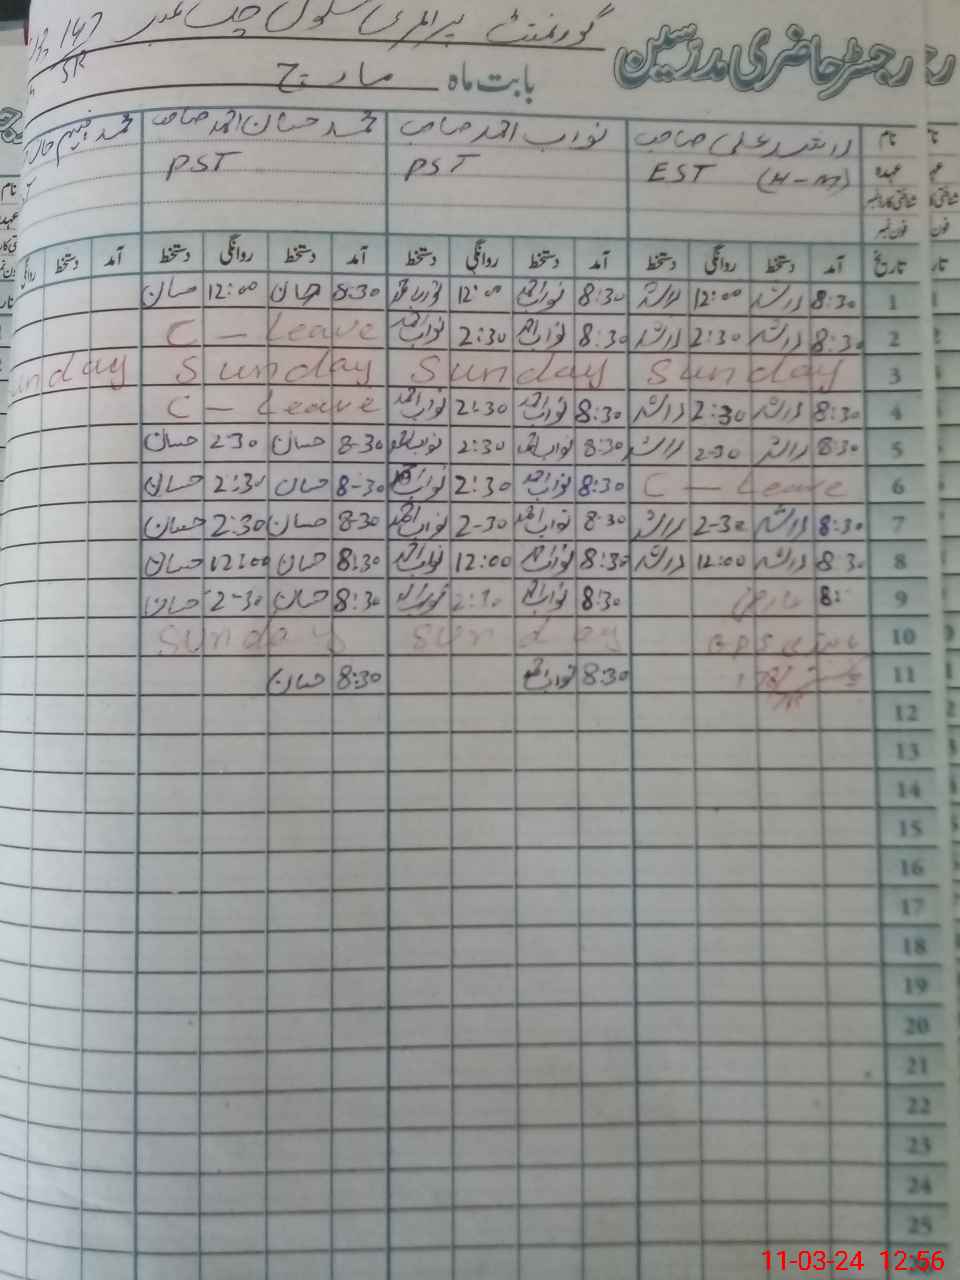 رجسٹر حاضری مدرسین گورنمنٹ پرائمری سکول چک نمبر 147
SR
بابت ماہ مارچ
نام راشد علی صاحب نواب احمد صاحب محمد حسان احمد صاحب محمد
عہدہ EST (H-M) PST PST
شناختی کارڈ نمبر
فون نمبر
تاریخ آمد دستخط روانگی دستخط آمد دستخط روانگی دستخط آمد دستخط روانگی دستخط آمد دستخط روانگی
1 8:30 راشد 12:00 راشد 8:30 نواب احمد 12:00 نواب احمد 8:30 حسان 12:00 حسان
2 8:30 راشد 2:30 راشد 8:30 نواب احمد 2:30 نواب احمد C - Leave
3 Sunday Sunday Sunday Sunday
4 8:30 راشد 2:30 راشد 8:30 نواب احمد 2:30 نواب احمد C - Leave
5 8:30 راشد 2-30 راشد 8:30 نواب احمد 2:30 نواب احمد 8-30 حسان 2-30 حسان
6 C - Leave 8:30 نواب احمد 2:30 نواب احمد 8-30 حسان 2:30 حسان
7 8:30 راشد 2-30 راشد 8:30 نواب احمد 2-30 نواب احمد 8-30 حسان 2:30 حسان
8 8:30 راشد 12:00 راشد 8:30 نواب احمد 12:00 نواب احمد 8:30 حسان 12:00 حسان
9 8: 8:30 نواب احمد 2:30 نواب احمد 8:30 حسان 2-30 حسان
10 GPS Sunday Sunday
11 8:30 نواب احمد 8:30 حسان
12
13
14
15
16
17
18
19
20
21
22
23
24
25
11-03-24 12:56